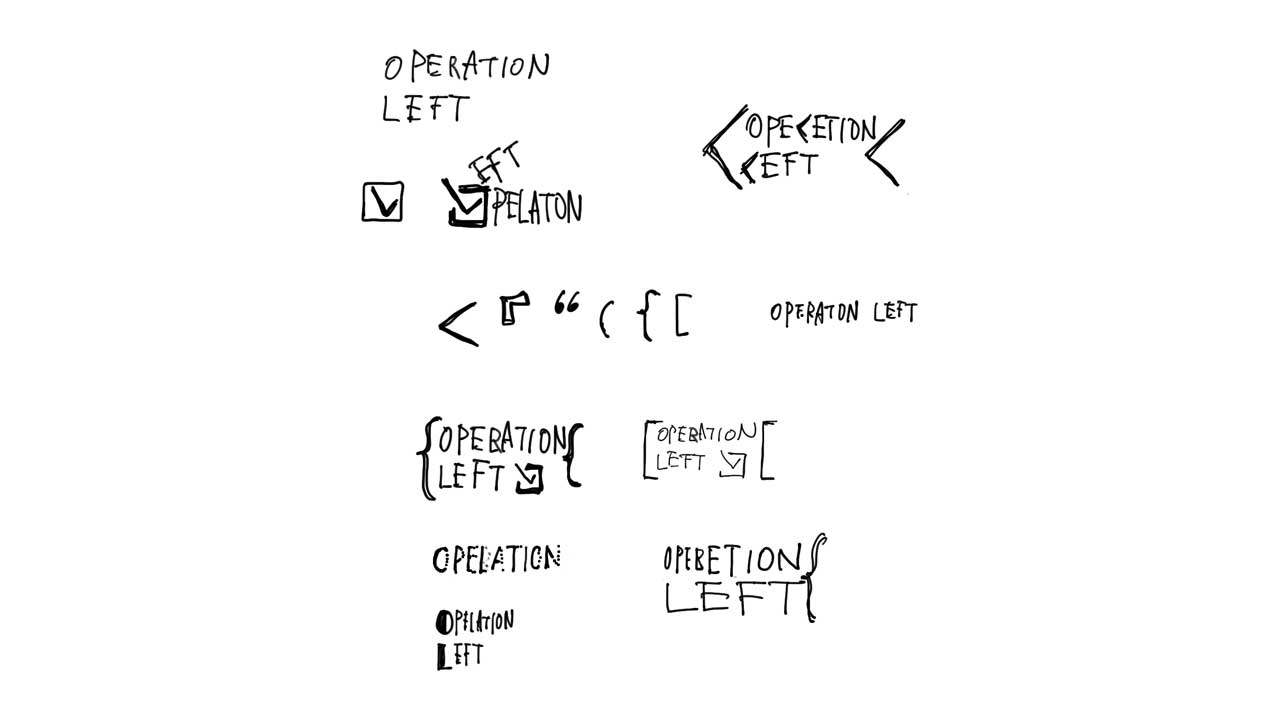 OPERATION
LEFT
OPE<ETION
<EFT
EFT
PELATON
< “ ( { [
OPERATON LEFT
{OPERATION{
LEFT
[OPERATION[
LEFT
OPELATION
OPERETION{
LEFT
OPELATION
LEFT